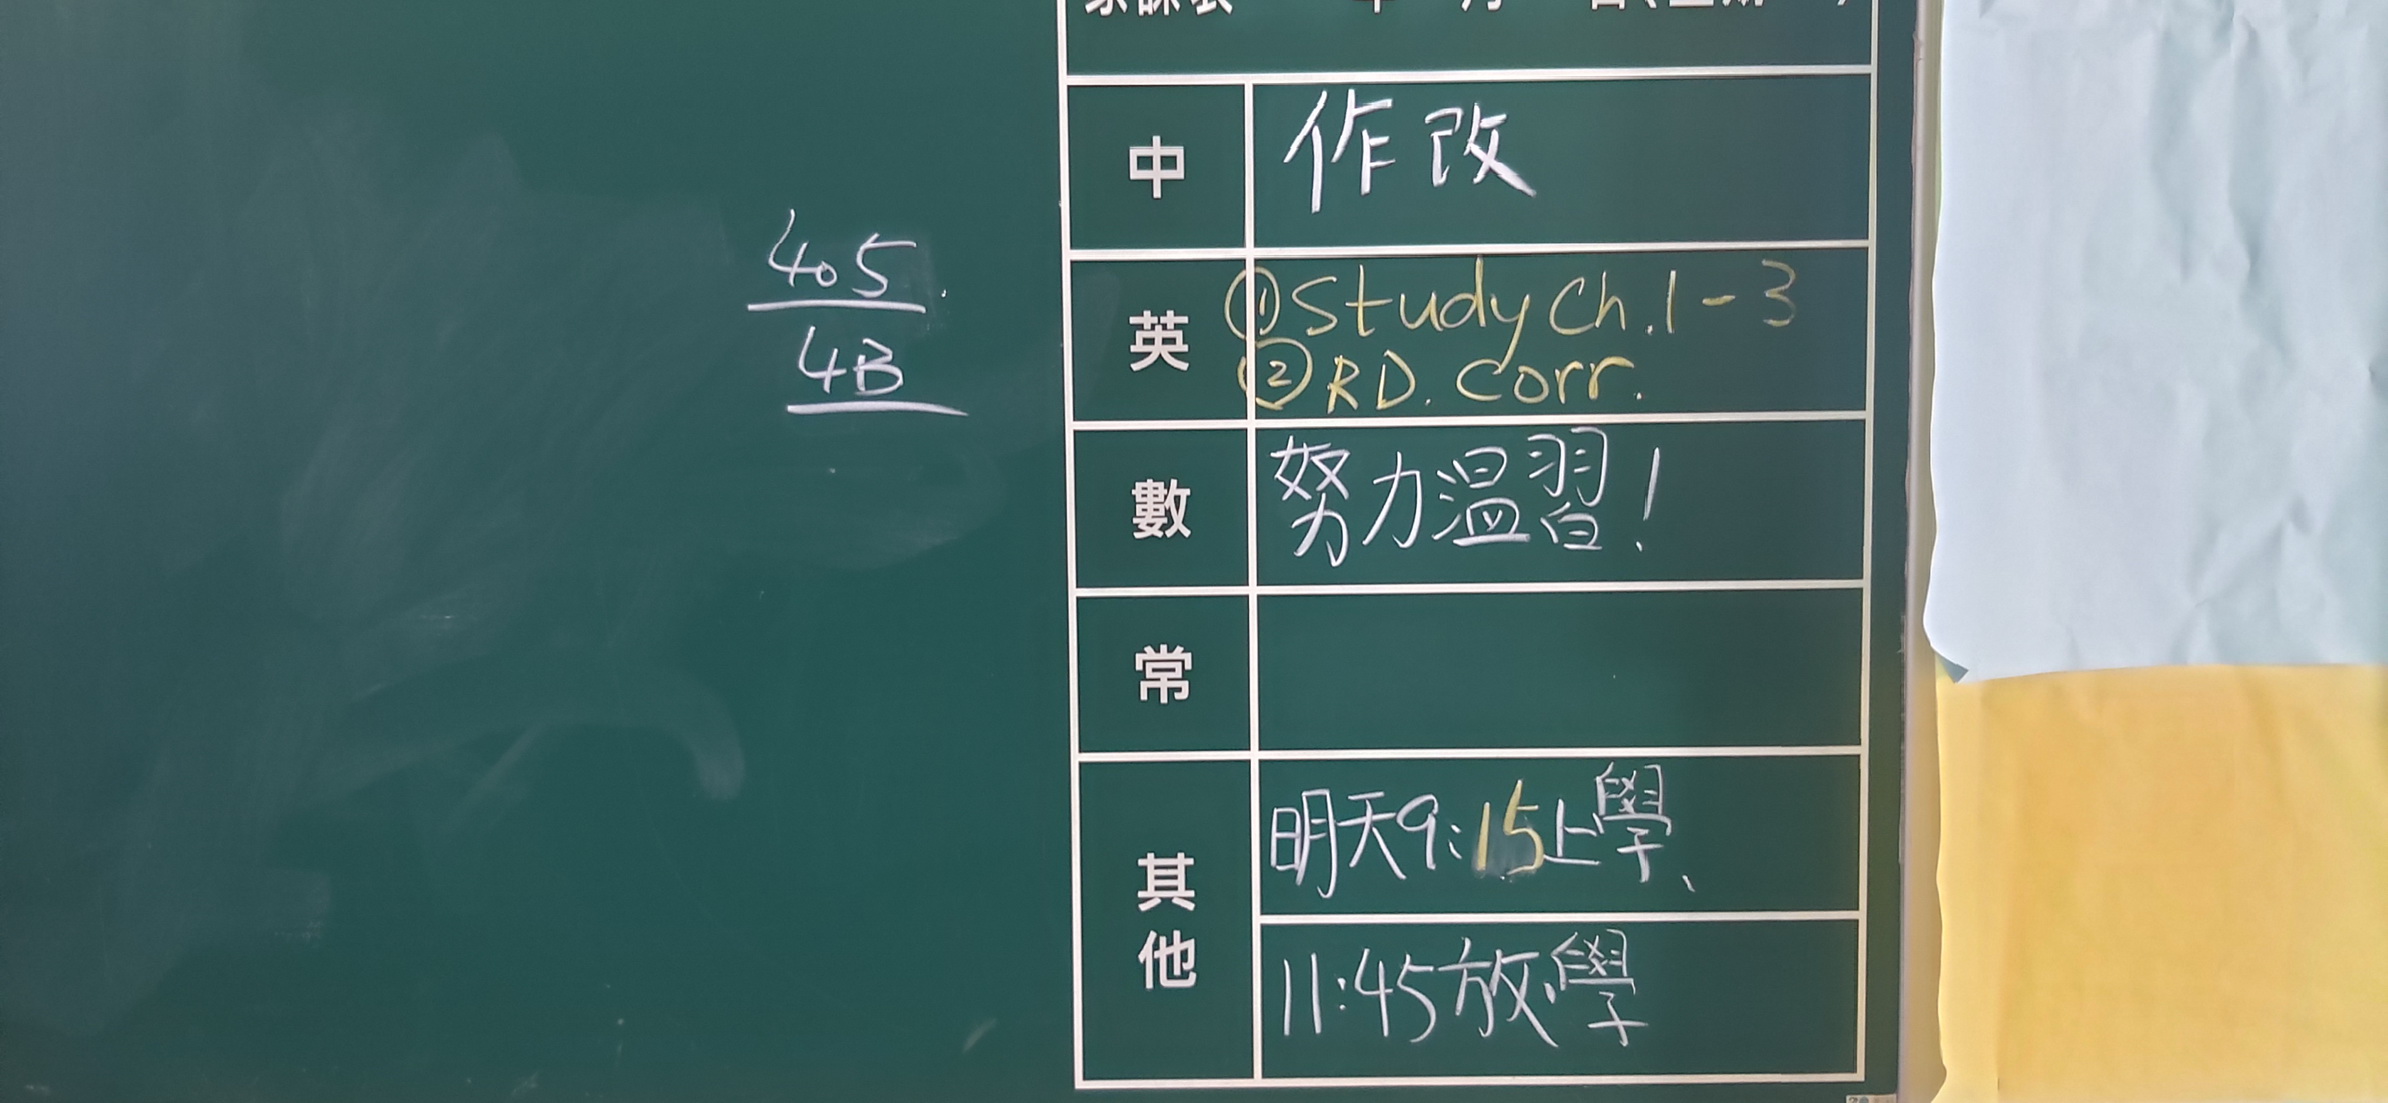 家課表 年 月 日(星期 )
405
4B
中 作改
英 ①Study Ch.1-3
②RD. Corr.
數 努力溫習!
常
其他 明天9:15上學、
11:45放學